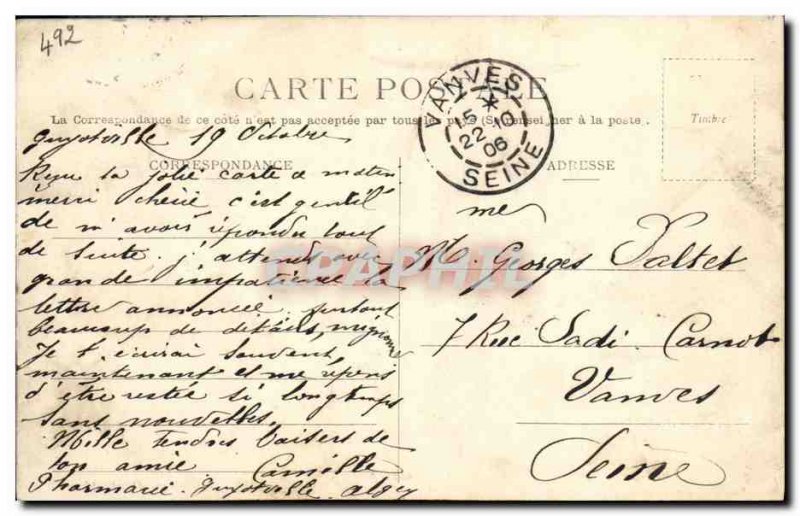 492
CARTE POSTALE
La Correspondance de ce côté n'est pas acceptée par tous les pays (Se renseigner à la poste.
Timbre
VANVES
15 * 
22-10
06
SEINE
CORRESPONDANCE
ADRESSE
Guyotville 19 Octobre
Reçu ta jolie carte ce matin
merci chérie c'est gentil
de m'avoir répondu tout
de suite. J'attends avec
grande impatience la
lettre annoncée, surtout
beaucoup de détails, mignonne
Je t'écrirai souvent
maintenant et me repens
d'être restée si longtemps
sans nouvelles.
Mille tendres baisers de
ton amie Camille
Pharmacie. Guyotville Alger
me
M Georges Paltet
7 Rue Sadi Carnot
Vanves
Seine
CPAPHIL